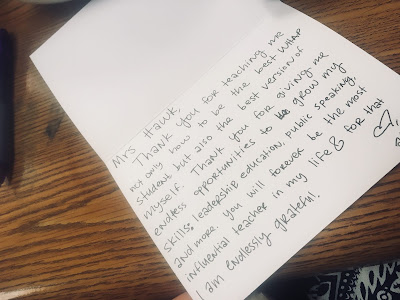 Mrs. Hawk,
Thank you for teaching me
not only how to be the best WHAP
student but also the best version of
myself. Thank you for giving me
endless opportunities to grow my
skills: leadership education, public speaking,
and more. You will forever be the most
influential teacher in my life & for that
I am endlessly grateful!